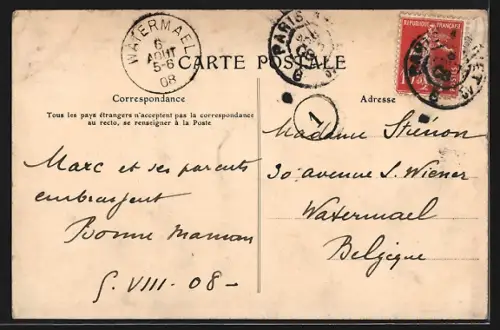 WATERMAEL
6
AOUT
5-6
08
PARIS
CARTE POSTALE
REPUBLIQUE FRANÇAISE
POSTES
PARIS
Correspondance
Tous les pays étrangers n'acceptent pas la correspondance
au recto, se renseigner à la Poste
Adresse
1
Marc et ses parents
embrassent
Bonne maman
5. VIII - 08 -
Madame Stiénon
30 avenue L. Wiener
Watermael
Belgique